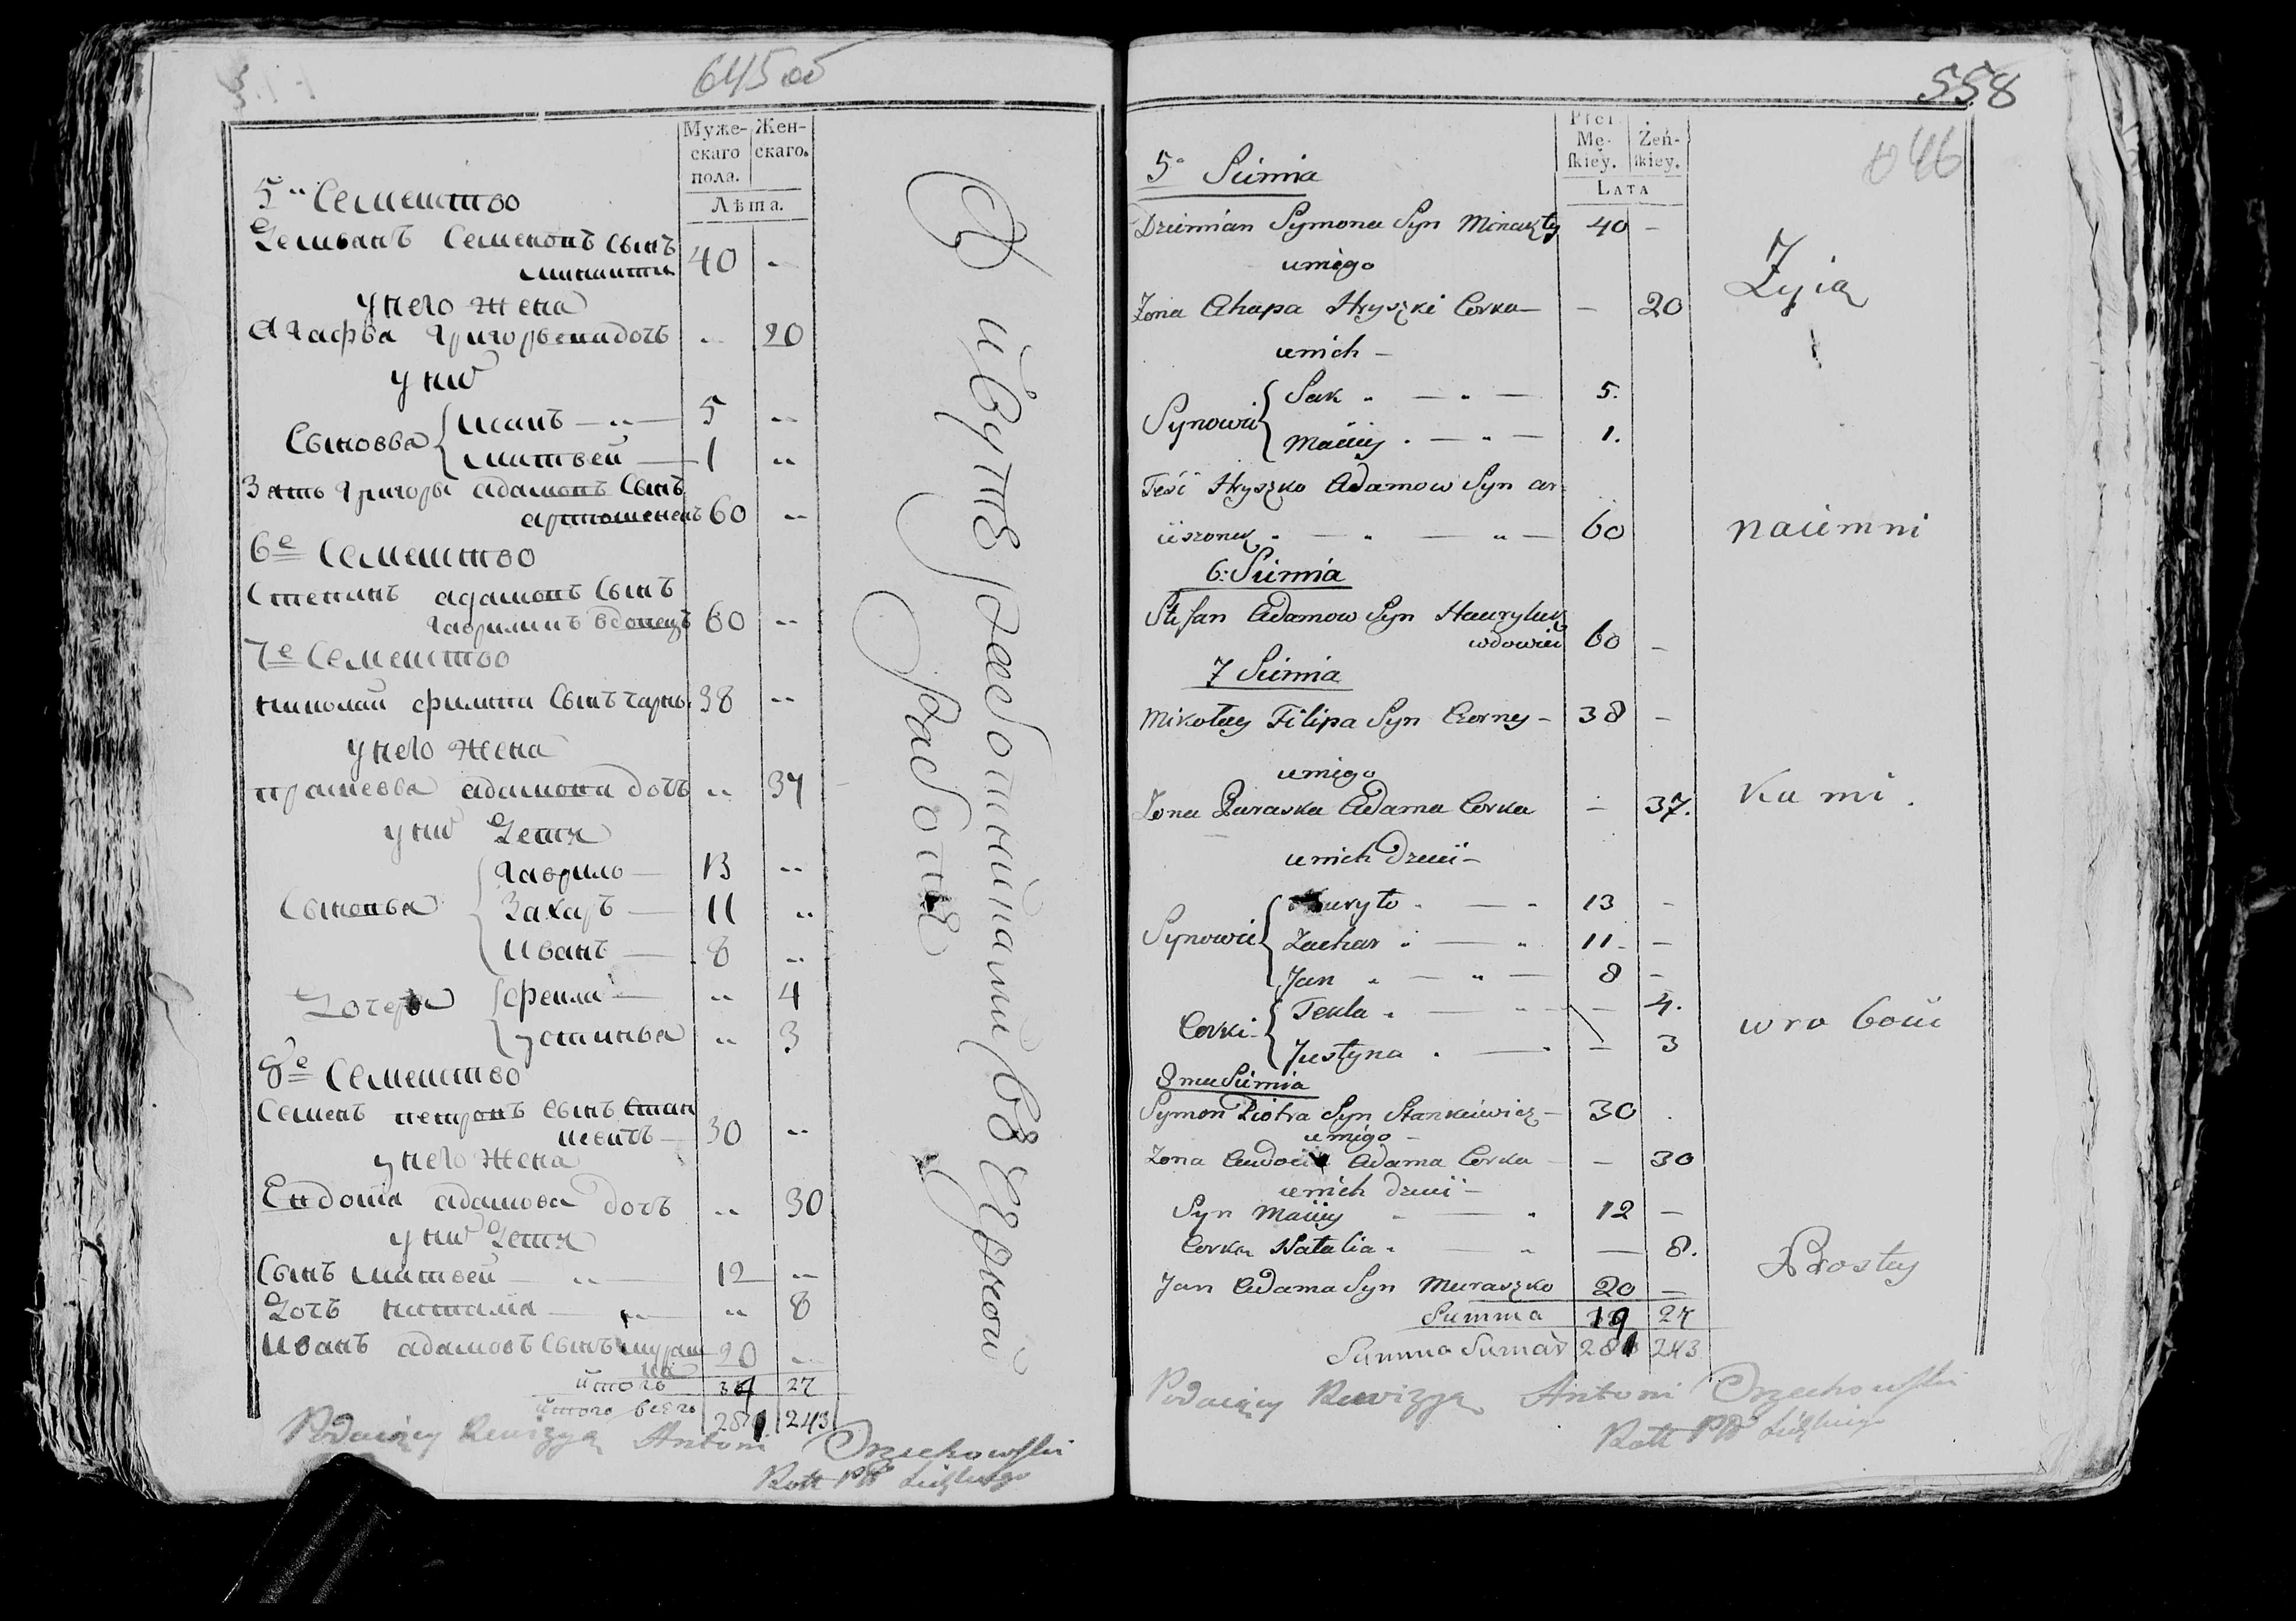 645 об
Муже-
скаго
пола.
Жен-
скаго.
Лѣта.
5 Семейство
Демьянъ Семеновъ Сынъ
40 -
у него жена
Агафья Григорьева дочь - 20
у них
Сыновья
Исакъ 5 -
Матвей 1 -
Зять Григоры Адамовъ Сынъ
60 -
6е Семейство
Степанъ Адамовъ Сынъ
Гаврилик вдовецъ 60 -
7е Семейство
Николай Филипа Сынъ Чарны 38 -
у него жена
Прасковья Адамова дочь - 37
у них Дети
Сыновья
Гаврило 13 -
Захаръ 11 -
Иванъ 8 -
Дочеры
Фекла - 4
Устинья - 3
8е Семейство
Семенъ Петровъ Сынъ Стан
кевичъ 30 -
у него жена
Евдокия Адамова дочь - 30
у них Дети
Сынъ Матвей 12 -
Дочь Наталия - 8
Иванъ Адамовъ Сынъ Мураш
ка 20 -
Итого 27
Итого всего 281 243
Podaiący Rewizyą Antoni Orzechowski
Живутъ работниками, всегдной
работе
558
646
Płci
Mę-
skiéy.
Żeń-
skiey.
LATA
5a Siemia
Dziemian Symona Syn 40 -
u niego
Zona Ahapa Hryszki Corka - 20
u nich -
Synowie
Sak 5.
Maciey 1.
Teść Hryszko Adamow Syn Ar-
ciszonek 60
6: Siemia
Stefan Adamow Syn Hawryluk
wdowiec 60 -
7 Siemia
Mikołay Filipa Syn Czorny - 38 -
u niego
Zona Paraska Adama Corka - 37.
u nich Dzieci -
Synowie
Hauryło 13 -
Zachar 11 -
Jan 8 -
Corki
Tekla - 4.
Justyna - 3
8ma Siemia
Symon Piotra Syn Stankiewicz - 30
u niego -
Zona Audocia Adama Corka - 30
u nich Dzieci -
Syn Maciey 12 -
Corka Natalia - 8.
Jan Adama Syn Muraszko 20 -
Summa 19 27
Summa Sumar 281 243
Żyią
naiemni
kami.
w roboci
Prostey
Podaiący Rewizyą Antoni Orzechowski